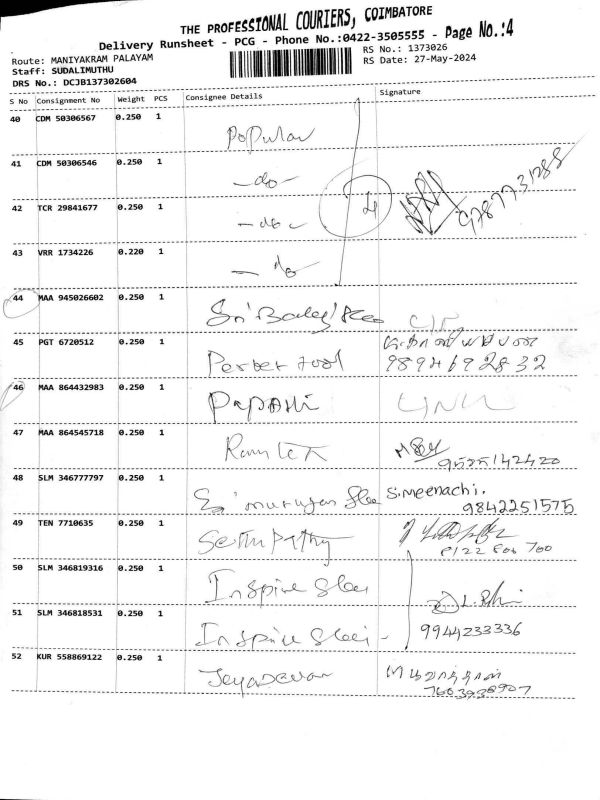 THE PROFESSIONAL COURIERS, COIMBATORE
Delivery Runsheet - PCG - Phone No.:0422-3505555 - Page No.:4
Route: MANIYAKRAM PALAYAM
RS No.: 1373026
Staff: SUDALIMUTHU
RS Date: 27-May-2024
DRS No.: DCJB137302604
S No Consignment No Weight PCS Consignee Details Signature
40 CDM 50306567 0.250 1 Popular
41 CDM 50306546 0.250 1 -do-
42 TCR 29841677 0.250 1 -do- 4 9787731288
43 VRR 1734226 0.220 1 -do-
44 MAA 945026602 0.250 1 Sri Balaji
45 PGT 6720512 0.250 1 Perfect tool
9894692832
46 MAA 864432983 0.250 1
47 MAA 864545718 0.250 1
9525142420
48 SLM 346777797 0.250 1 murugan S.Meenachi.
9842251575
49 TEN 7710635 0.250 1 Sethupathy
50 SLM 346819316 0.250 1 Inspire
51 SLM 346818531 0.250 1 Inspire
9944233336
52 KUR 558869122 0.250 1 Jeyadevan